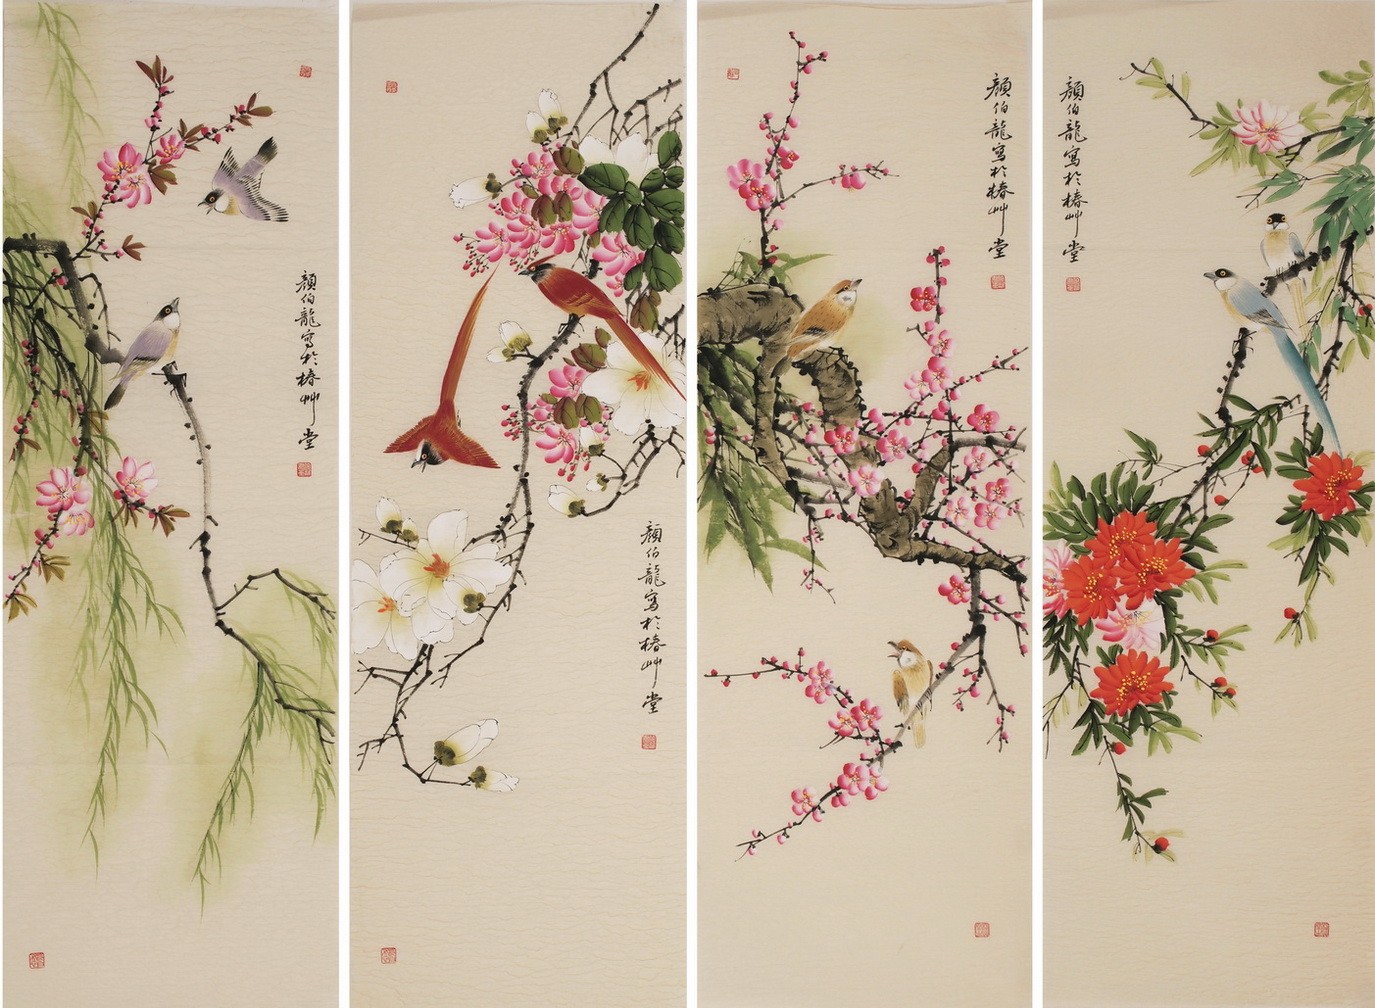 顏伯龍寫於椿艸堂
顏伯龍寫於椿艸堂
顏伯龍寫於椿艸堂
顏伯龍寫於椿艸堂